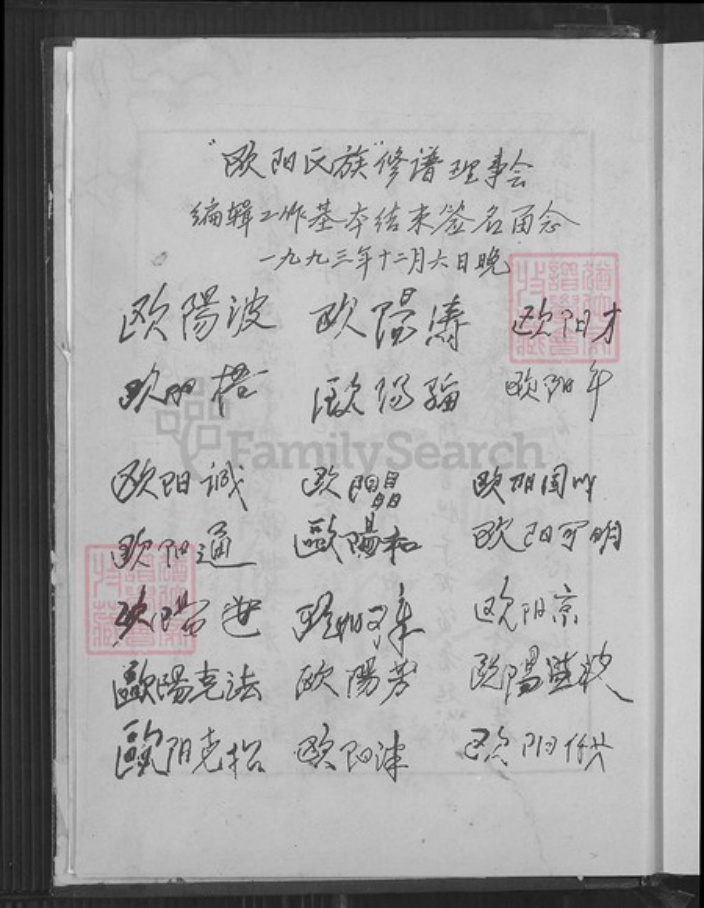 "欧阳氏族"修谱理事会
编辑工作基本结束签名留念
一九九三年十二月六日晚
欧陽波 欧陽涛 欧阳才
欧阳梧 欧阳午
FamilySearch
欧阳诚 欧阳晶 欧阳国
欧阳通 歐陽和 欧阳可明
欧阳京
歐陽克法 欧陽芳 欧陽
歐阳克松 欧阳津 欧阳